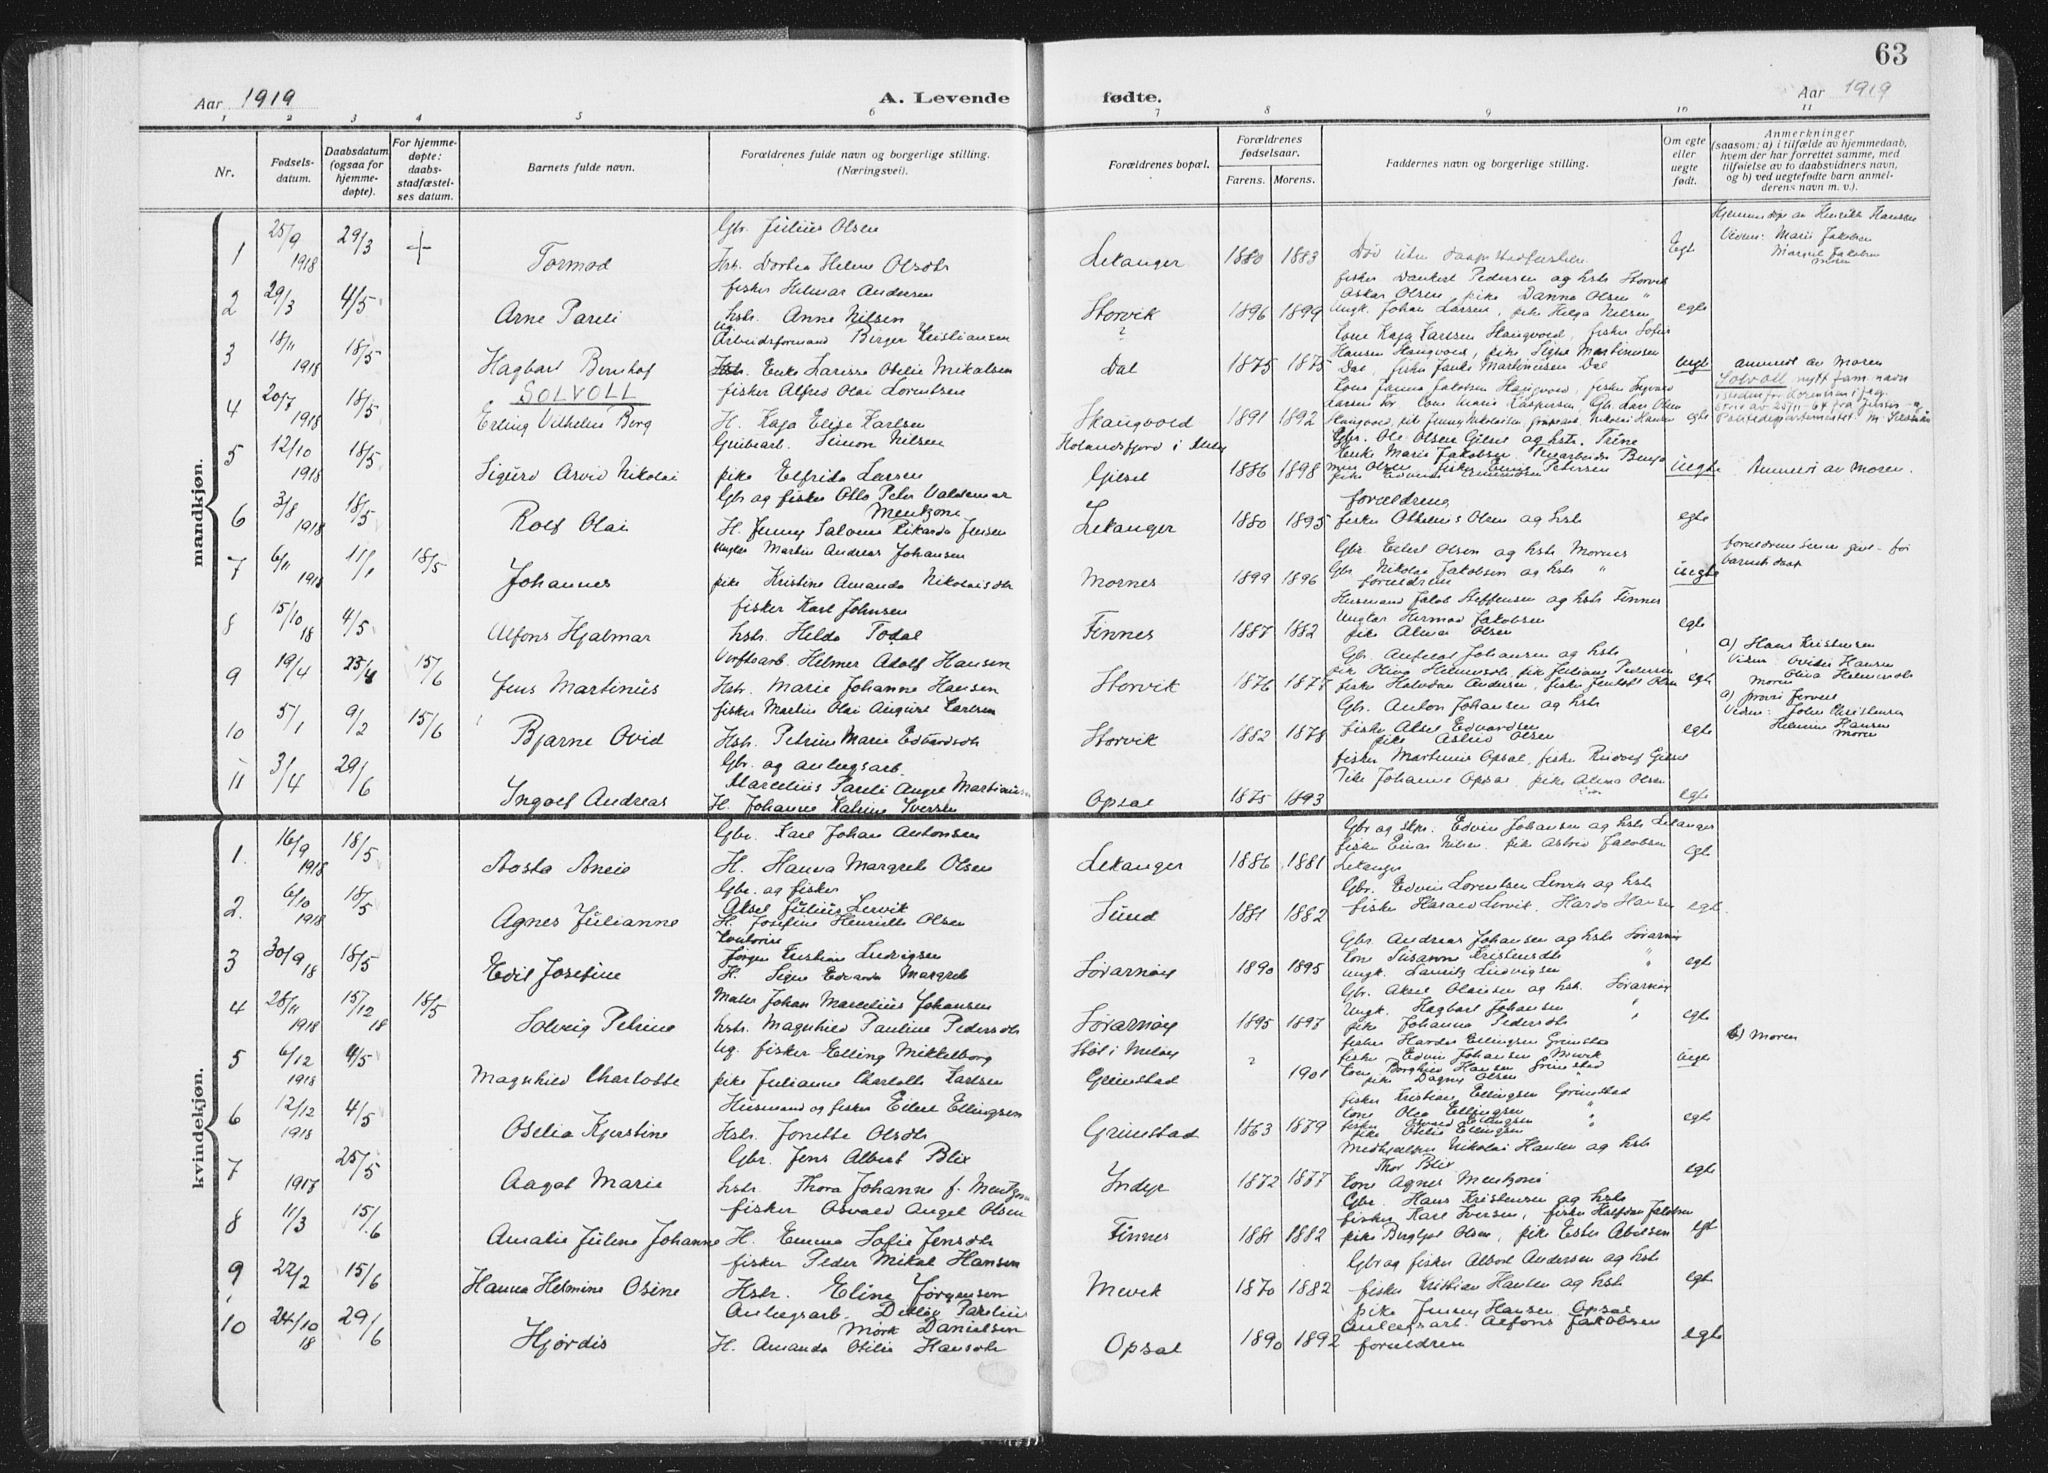 63
Aar 1919
A. Levende fødte.
Aar 1919
1 2 3 4 5 6 7 8 9 10 11
Nr.
Fødsels-
datum.
Daabsdatum
(ogsaa for
hjemme-
døpte).
For hjemme-
døpte:
daabs-
stadfæstel-
ses datum.
Barnets fulde navn.
Forældrenes fulde navn og borgerlige stilling.
(Næringsvei).
Forældrenes bopæl.
Forældrenes
fødselsaar.
Farens. Morens.
Faddernes navn og borgerlige stilling.
Om egte
eller
uegte
født.
Anmerkninger
(saasom: a) i tilfælde av hjemmedaab,
hvem der har forrettet samme, med
tilføielse av to daabsvidners navn,
og b) ved uegtefødte barn anmel-
derens navn m. v.).
mandkjøn.
1 25/9 1918 29/3 + Tormod
Gbr. Julius Olsen
Hst. Dortea Helene Olsdtr
Lekanger 1880 1883 Død uten daapsstadfæstelse egte
Hjemmedøpt av Henrik Hansen
Vidner: Marie Jakobsen
Margrete Jakobsen
Moren
2 29/3 4/5 Arne Pareli
fisker Helmar Andersen
hstr. Anne Nilsen
Storvik 1896 1899
fisker Dankert Pedersen og hstr Storvik
Oskar Olsen pike Danna Olsen "
Ungk. Johan Larsen, pike Helga Nilsen
egte
3 18/11 1918 18/5 Hagbart Bernhof
Ug. Arbeidsformand Berger Kristiansen
Enke Larisse Otelie Mikalsen
? Dal 1875 1875
Kone Kaja Karlsen Skaugvold, fisker Sofus
Hansen Haugvold, pike Signe Martinussen
Dal, fisker Jentz Martinussen Dal
uegte anmeldt av moren
4 20/7 1918 18/5 SOLVOLL
Erling Vilhelm Borg
fisker Alfred Olai Lorentsen
H. Kaja Elise Karlsen
Skaugvold 1891 1892
Kone Janna Jakobsen Skaugvold, fisker Ingvald
Larsen Kone Marie Kaspersen, Gbr. Lars Olsen
Skaugvold, pik Jenny Nikolaisen Nikolai Hansen
egte
Solvoll nytt fam. navn
istedenfor Lorentsen
skriv av 20/11-64 fra Justis- og
Politidepartementet.
5 12/10 1918 18/5 Sigurd Arvid Nikolai
Grubearb. Simon Nilsen
pike Elfrida Larsen
Holandsfjord i
Gilset 1886 1898
Gbr. Ole Olsen Gilset og hstr. Trine
Enke Marie Jakobsen
Olsen fisker Petersen
uegte Anmeldt av Moren.
6 3/8 1918 18/5 Rolf Olai
Gbr og fisker Otto Peter Valdemar
Mentzoni
H. Jenny Salome Rikarda Jensen
Lekanger 1880 1895
forældrene
fisker Othelius Olsen og hstr
egte
7 6/11 1918 11/1 18/5 Johannes
Ungkar Martin Andreas Johansen
pike Kristine Amanda Nikolaisdtr
Mornes 1899 1896
Gbr Eilert Olsen og hstr Mornes
Gbr Nikolai Jakobsen og hstr "
forældrene
uegte
forældrene senere givt - før
barnets daap
8 15/10 18 4/5 Alfons Hjalmar
fisker Karl Johnsen
hstr. Helda Todal
Finnes 1887 1882
Husmand Jakob Steffensen og hstr Finnes
Ungkar Hermod Jakobsen
pike Alma Olsen
egte
9 19/4 23/4 15/6 Jens Martinus
Verftsarb. Helmer Adolf Hansen
Hstr. Marie Johanne Hansen
Storvik 1876 1877
Gbr. Anfeldt Johansen og hstr
pik Oliva Helmersdtr, pik Juliane Pedersen
fisker Halvdan Andersen, fisker Olsen
egte
a) Hans Kristensen
Vidner: Hansen
Oliva Helmersdtr
Moren
10 5/1 9/2 15/6 Bjarne Ovid
fisker Martin Olai August Karlsen
Hstr. Petrine Marie Edvardsdtr
Storvik 1882 1878
Gbr. Anton Johansen og hstr
fisker Aksel Edvardsen
pike Astrid Olsen
egte
a)
Vidner: John Christensen
Helmine Hansen
Moren
11 3/4 29/6 Ingolf Andreas
Gbr. og anlægsarb.
Marcelius Pareli Angel Martinussen
H. Johanne Katrine Iversen
Opsal 1875 1893
fisker Martinus Opsal, fisker Rudolf Gilset
Pike Johanne Opsal pike Alma Olsen
egte
kvindekjøn.
1. 16/9 1918 18/5 Aasta Aneie
Gbr. Karl Johan Antonsen
H. Hanna Margrete Olsen
Lekanger 1886 1881
Gbr og skpr. Edvin Johansen og hstr Lekanger
fisker Einar Nilsen, pike Astrid Jakobsen
Lekanger
egte
2. 6/10 1918 18/5 Agnes Julianne
Gbr. og fisker
Aksel Julius Lervik
H. Josefine Henriette Olsen
Sund 1881 1882
Gbr. Edvin Lorentsen Lervik og hstr
fisker Harald Lervik. Harda Hansen
egte
3 30/9 18 18/5 Edil Josefine
Kontorist
Jørgen Kristian Ludvigsen
H. Signe Edvarda Margrete
Sørarnøy 1890 1895
Gbr. Andreas Johansen og hstr Sørarnøy
Kone Susanne Kristensdtr "
Ungk. Lauritz Ludvigsen "
egte
4 28/11 1918 15/12 18 18/5 Solveig Petrine
Maler Johan Marcelius Johansen
hstr. Magnhild Pauline Pedersdtr
Sørarnøy 1895 1897
Gbr. Aksel Olaisen og hstr. Sørarnøy
Ungk. Hagbart Johansen "
pike Johanna Pedersdtr
egte
5 6/12 1918 4/5 Magnhild Charlotte
Ug. fisker Elling Mikkelborg
pike Julianne Charlotte Karlsen
Støt i Meløy
Grimstad ? 1901
fisker Hardes Ellingsen Grimstad
fisker Edvin Johansen Mevik
Kone Borghild Hansen Grimstad
pike Dagny Olsen "
uegte b) Moren
6 12/12 1918 4/5 Oselia Kjerstine
Husmand og fisker Eilert Ellingsen
Hstr. Jonette Olsdtr
Grimstad 1863 1879
fisker Kristian Ellingsen Grimstad
Kone Olea Ellingsen "
fisker Osvald Ellingsen "
pike Otelie Ellingsen
egte
7 1917 25/5 Aagot Marie
Gbr. Jens Albert Blix
hstr. Thora Johanne f. Mentzoni
Indyr 1872 1877
Medhjælper Nikolai Hansen og hstr
Thor Blix
Kone Agnes Mentzoni
egte
8 11/3 15/6 Amalie Julene Johanne
fisker Osvald Angel Olsen
H. Emma Sofie Jensdtr
Finnes 1881 1882
Gbr Hans Kristensen og hstr
fisker Karl Iversen, fisker Halfdan Jakobsen
pike Bergljot Olsen, pike Ester Abelsen
egte
9 22/2 15/6 Hanna Helmine Osine
fisker Peder Mikal Hansen
Hstr. Eline Jørgensen
Mevik 1870 1882
Gbr og fisker Albert Andersen og hstr
fisker Kristian Hansen og hstr
pike Jenny Hansen Opsal
egte
10 24/10 18 29/6 Hjørdis
Anlægsarb. Detlev Parelius
Mørk Danielsen
H. Amanda Otilie Hansdtr
Opsal 1890 1892
Anlægsarb. Alfons Jakobsen
forældrene
egte